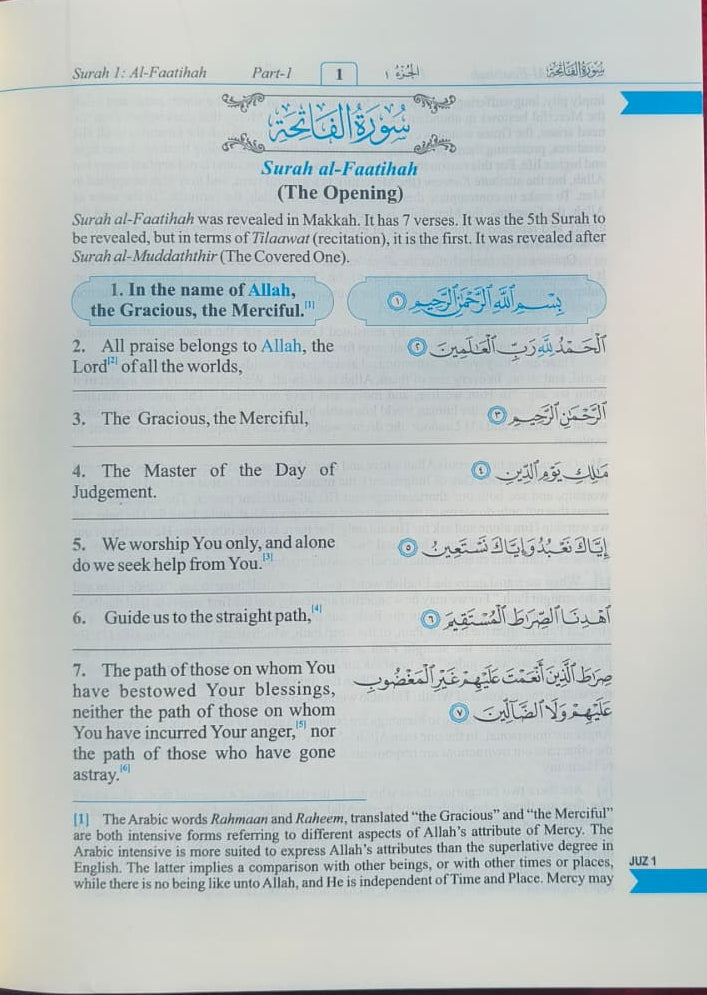 Surah 1: Al-Faatihah Part-1 1 الجزء ١ سورة الفاتحة
سُورَةُ الفَاتِحَة
Surah al-Faatihah
(The Opening)
Surah al-Faatihah was revealed in Makkah. It has 7 verses. It was the 5th Surah to
be revealed, but in terms of Tilaawat (recitation), it is the first. It was revealed after
Surah al-Muddaththir (The Covered One).
1. In the name of Allah,
the Gracious, the Merciful.[1]
بِسْمِ اللَّهِ الرَّحْمَٰنِ الرَّحِيمِ ١
2. All praise belongs to Allah, the
Lord[2] of all the worlds,
الْحَمْدُ لِلَّهِ رَبِّ الْعَالَمِينَ ٢
3. The Gracious, the Merciful,
الرَّحْمَٰنِ الرَّحِيمِ ٣
4. The Master of the Day of
Judgement.
مَالِكِ يَوْمِ الدِّينِ ٤
5. We worship You only, and alone
do we seek help from You.[3]
إِيَّاكَ نَعْبُدُ وَإِيَّاكَ نَسْتَعِينُ ٥
6. Guide us to the straight path,[4]
اهْدِنَا الصِّرَاطَ الْمُسْتَقِيمَ ٦
7. The path of those on whom You
have bestowed Your blessings,
neither the path of those on whom
You have incurred Your anger,[5] nor
the path of those who have gone
astray.[6]
صِرَاطَ الَّذِينَ أَنْعَمْتَ عَلَيْهِمْ غَيْرِ الْمَغْضُوبِ
عَلَيْهِمْ وَلَا الضَّالِّينَ ٧
[1] The Arabic words Rahmaan and Raheem, translated “the Gracious” and “the Merciful”
are both intensive forms referring to different aspects of Allah’s attribute of Mercy. The
Arabic intensive is more suited to express Allah’s attributes than the superlative degree in
English. The latter implies a comparison with other beings, or with other times or places,
while there is no being like unto Allah, and He is independent of Time and Place. Mercy may
JUZ 1